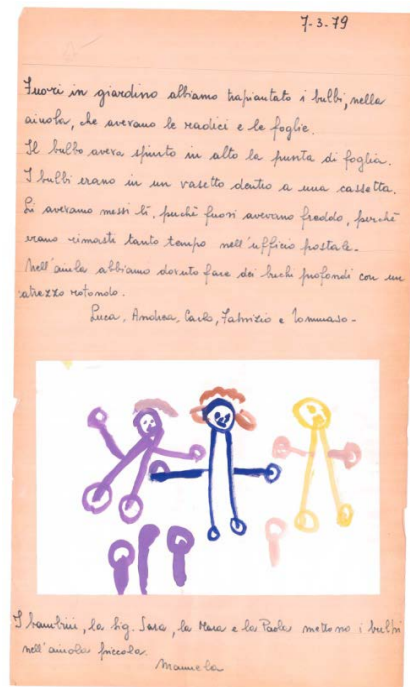 7-3-79
Fuori in giardino abbiamo trapiantato i bulbi, nella
aiuola, che avevano le radici e le foglie.
Il bulbo aveva spinto in alto la punta di foglia.
I bulbi erano in un vasetto dentro a una cassetta.
Li avevamo messi lì, perchè fuori avevano freddo, perchè
erano rimasti tanto tempo nell'ufficio postale.
Nell'aiuola abbiamo dovuto fare dei buchi profondi con un
attrezzo rotondo.
Luca, Andrea, Carlo, Fabrizio e Tommaso -
I bambini, la Sig. Sara, la Mara e la Paola mettono i bulbi
nell'aiuola piccola.
Manuela